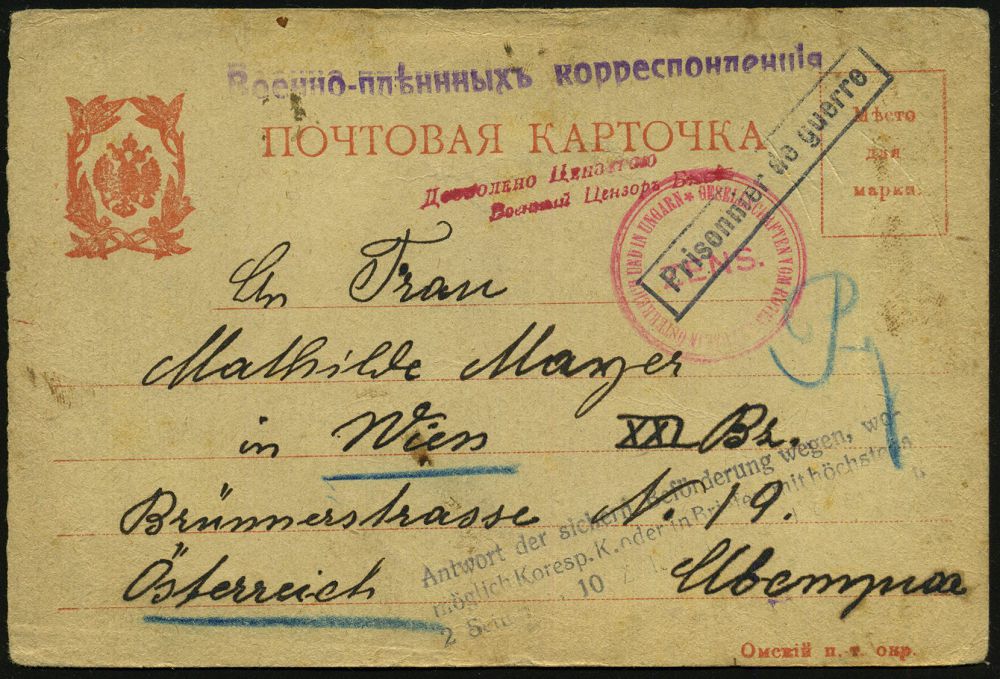 Военно-плѣннныхъ корреспонденція
ПОЧТОВАЯ КАРТОЧКА
Мѣсто
для
марки.
Дозволено Цензурою
Военный Цензоръ
Prisonnier de guerre
UND IN UNGARN * GESELLSCHAFTEN VOM ROTEN IN ÖSTERREICH
An Frau
Mathilde Mayer
in Wien XXI Bz.
Brünnerstrasse N. 19.
Österreich Австрия
Antwort der sichern Beförderung wegen, wo
möglich Koresp. K. oder in Briefen mit höchstens
2 10
Омскій п. т. окр.